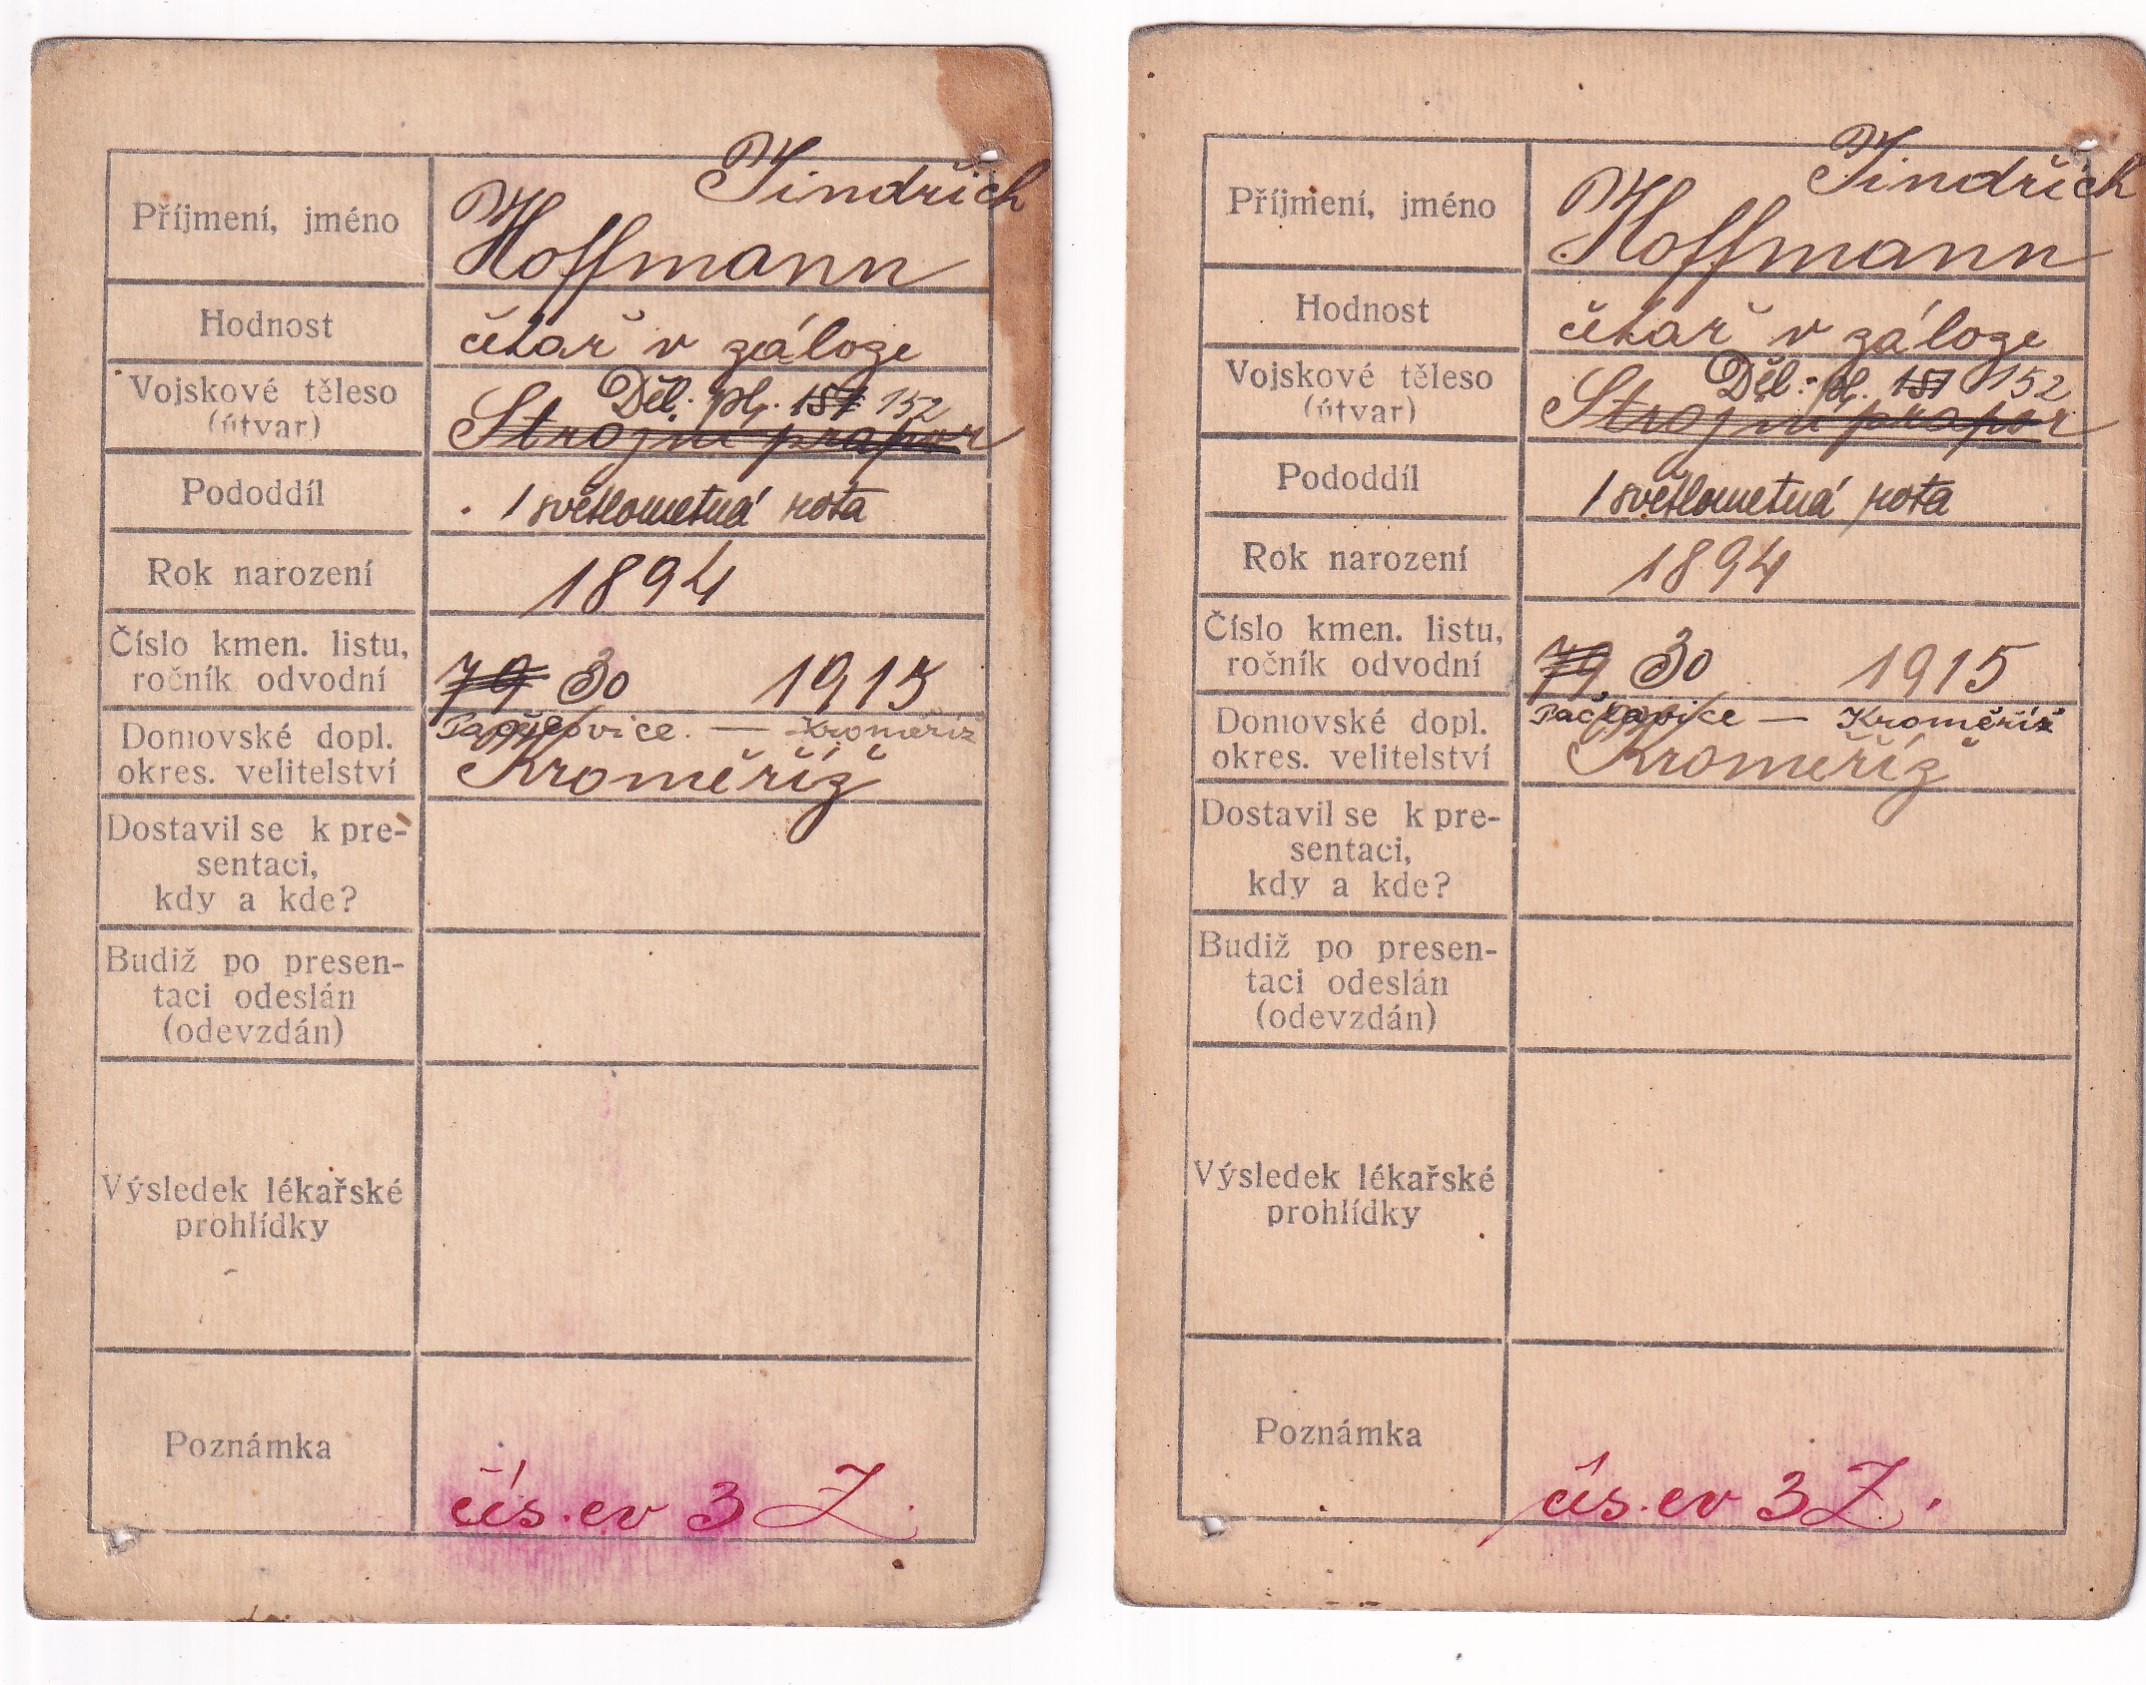 Jindřich
Příjmení, jméno Hoffmann
Hodnost četař v záloze
Děl. pl. 151 152
Vojskové těleso (útvar) Strojní prapor
Pododdíl 1 světlometná rota
Rok narození 1894
Číslo kmen. listu,
ročník odvodní 79 30 1915
Pačlavice. — Kroměříž
Domovské dopl.
okres. velitelství Kroměříž
Dostavil se k pre-
sentaci,
kdy a kde?
Budiž po presen-
taci odeslán
(odevzdán)
Výsledek lékařské
prohlídky
Poznámka
čís. ev 3 Z.
Jindřich
Příjmení, jméno Hoffmann
Hodnost četař v záloze
Děl. pl. 151 152
Vojskové těleso (útvar) Strojní prapor
Pododdíl 1 světlometná rota
Rok narození 1894
Číslo kmen. listu,
ročník odvodní 79 30 1915
Pačlavice — Kroměříž
Domovské dopl.
okres. velitelství Kroměříž
Dostavil se k pre-
sentaci,
kdy a kde?
Budiž po presen-
taci odeslán
(odevzdán)
Výsledek lékařské
prohlídky
Poznámka
čís. ev 3 Z.